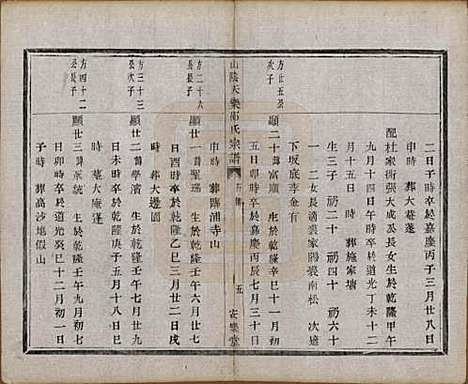 二日子時卒於嘉慶丙子三月廿八日
申時　葬大菴蓬
配杜家衖張大成公長女生於乾隆甲午
九月十四日午時卒於道光丁未十二
月十五日時　葬施家墳
生三子　初二十　初四十　初六十
一二女長適裘家陽裘南松　次適
下坂底李金有
方廿五公次子
顯二十　富順　生於乾隆辛巳十一月初
五日卯時卒於嘉慶丙辰七月三十日
申時　葬歸浦寺山
山陰天樂邱氏宗譜
五
安樂堂
方二十六公長子
顯廿一　聖瑞　生於乾隆壬午六月廿七
日酉時卒於乾隆乙巳三月廿二日戌
時　葬大邊園
方三十三公次子
顯廿二　學濱　生於乾隆壬午七月廿九
日未時卒於乾隆庚子五月十八日
時　葬大菴蓬
方四十二公長子
顯廿三　學統　生於乾隆壬午九月初七
日卯時卒於道光癸巳十二月初一日
子時　葬高沙地假山